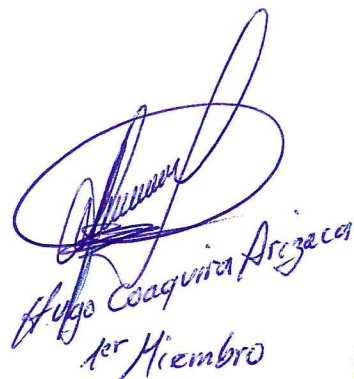 Hugo Coaquira Arizaca
1er Miembro